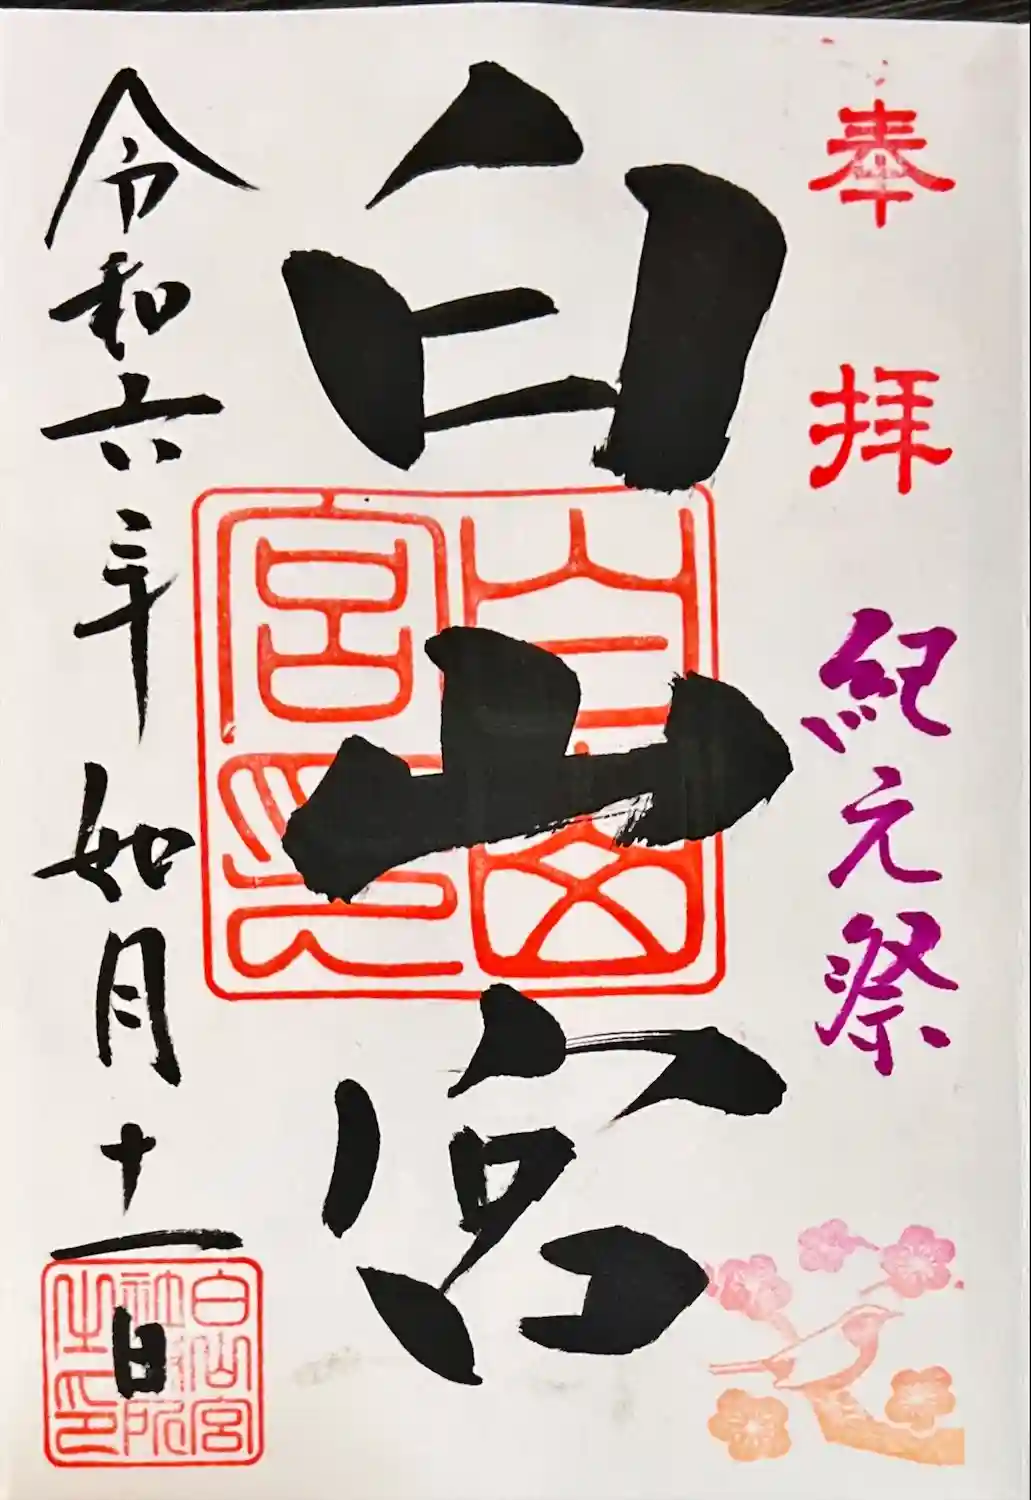 奉拝
紀元祭
白山宮
白山宮印
令和六年 如月十一日
白山宮社務所之印